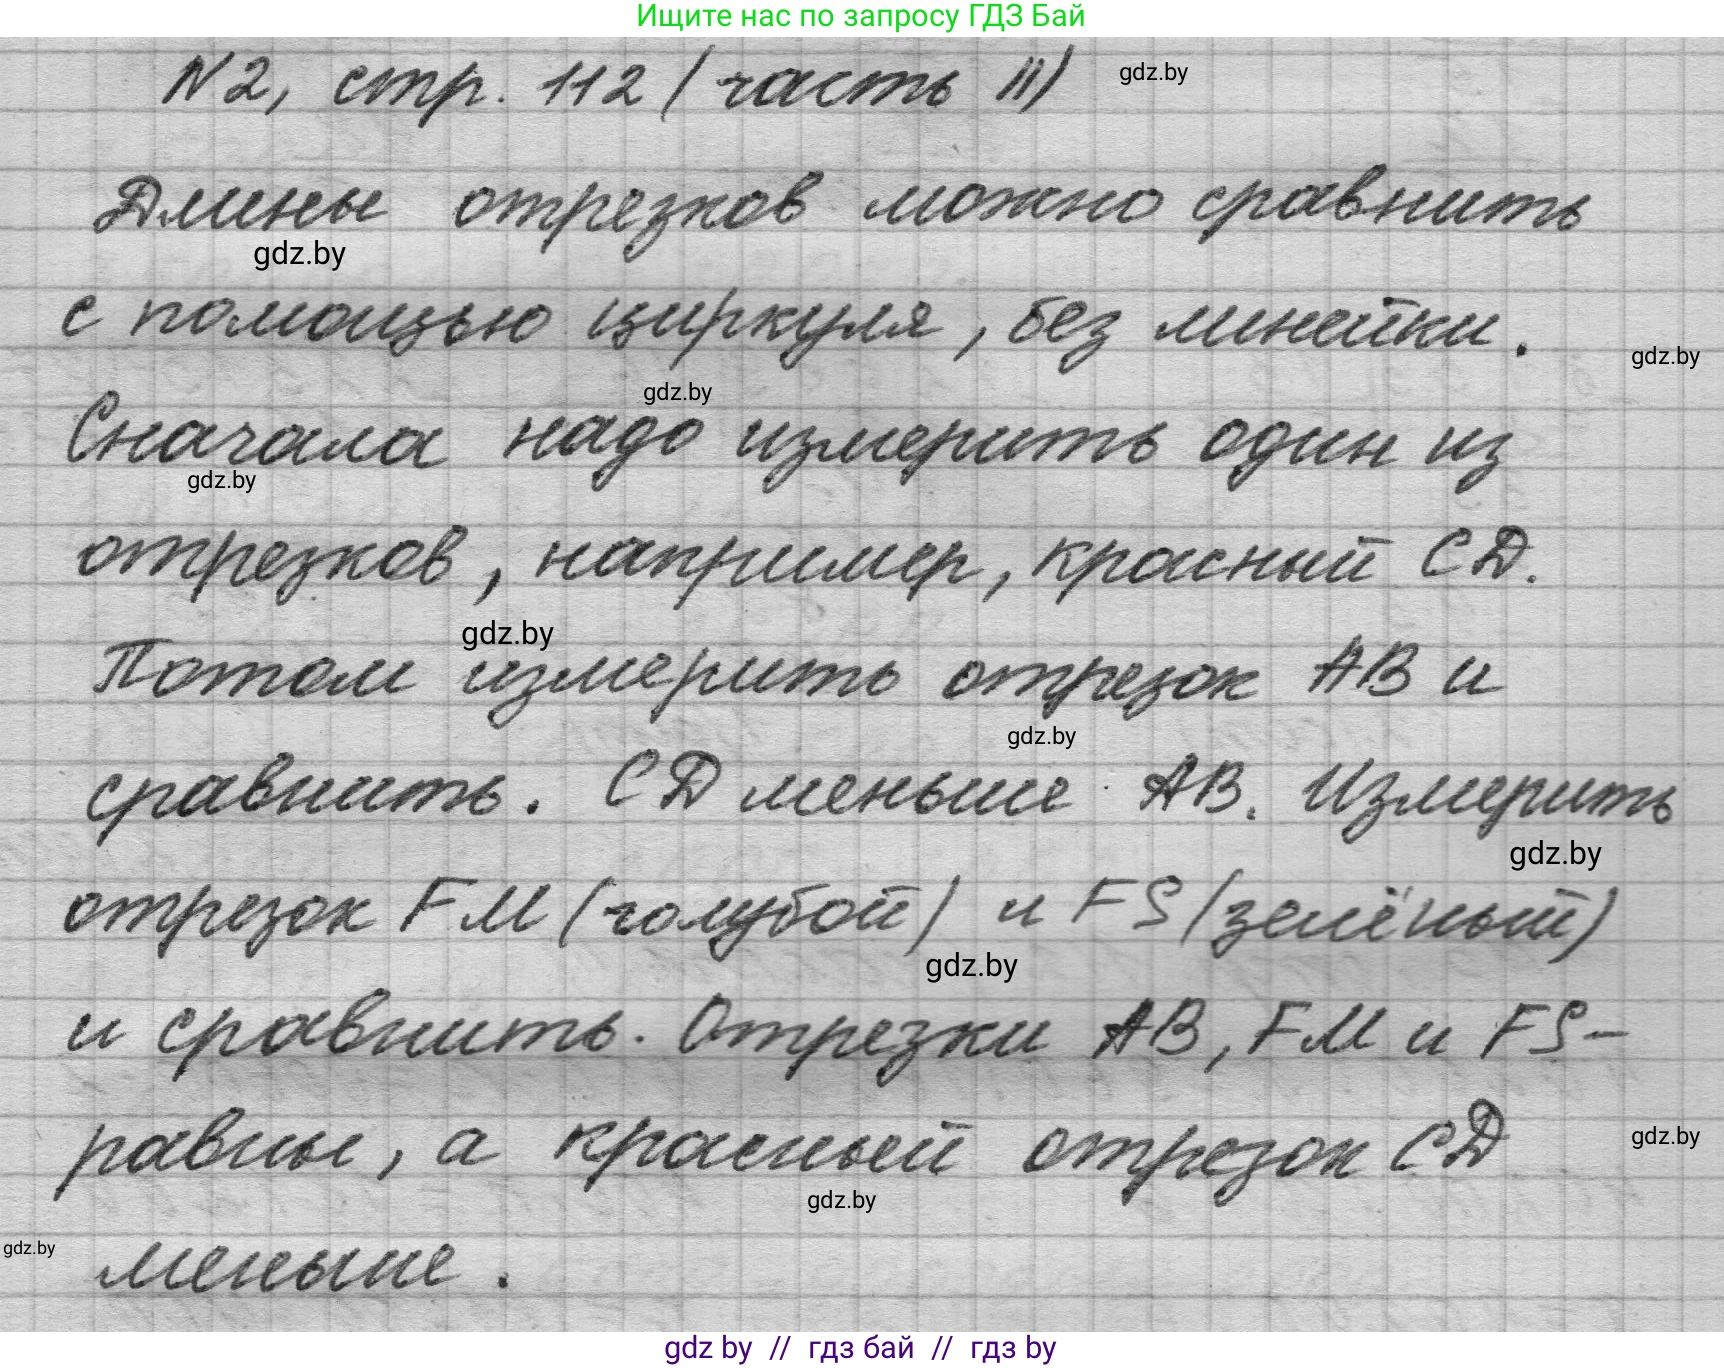 Ищите нас по запросу ГДЗ Бай
N2, стр. 112 (часть II)
gdz.by
Длины отрезков можно сравнить
gdz.by
с помощью циркуля, без линейки.
gdz.by
gdz.by
Сначала надо измерить один из
gdz.by
отрезков, например, красный СД.
gdz.by
Потом измерить отрезок АВ и
gdz.by
сравнить. СД меньше АВ. Измерить
gdz.by
отрезок FM (голубой) и FS (зелёный)
gdz.by
и сравнить. Отрезки АВ, FM и FS-
равны, а красный отрезок СД
gdz.by
gdz.by
gdz.by
меньше.
gdz by // гдз бай // гдз by